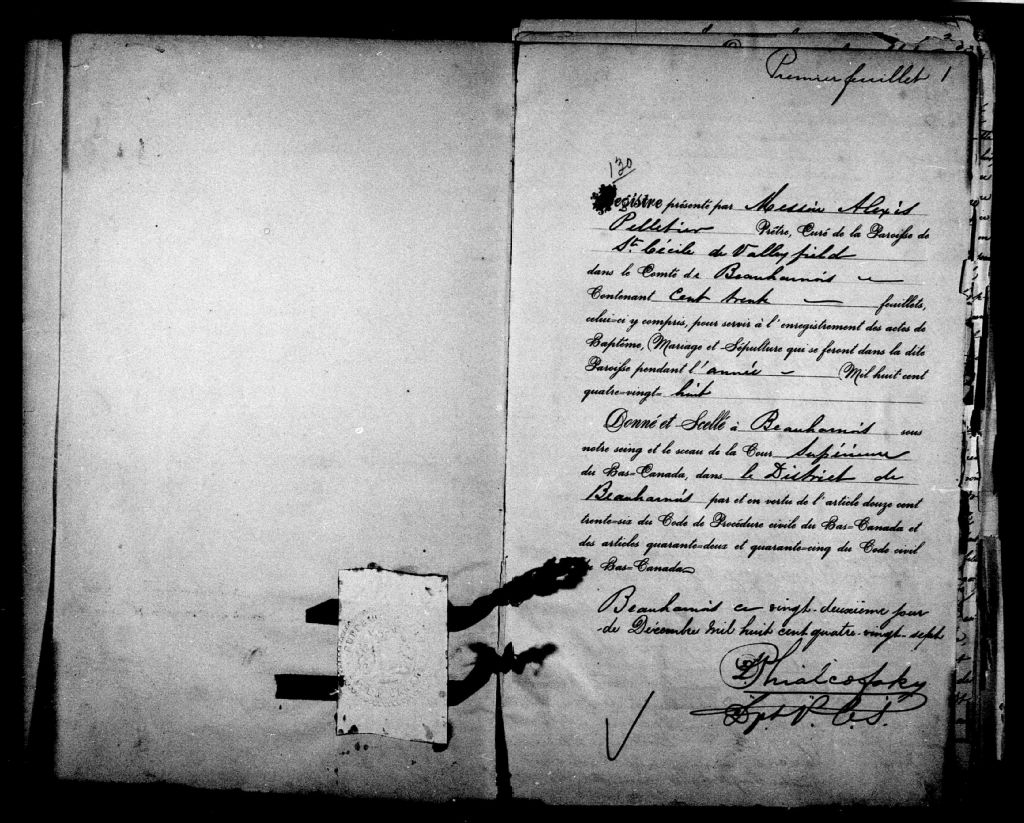 Premier feuillet 1
130
Registre présenté par Messire Alexis
Pelletier Prêtre, Curé de la Paroisse de
St. Cécile de Valleyfield
dans le Comté de Beauharnois
Contenant cent trente feuillets,
celui-ci y compris, pour servir à l'enregistrement des actes de
Baptême, Mariage et Sépulture qui se feront dans la dite
Paroisse pendant l'année Mil huit cent
quatre-vingt- huit
Donné et Scellé à Beauharnois sous
notre seing et le sceau de la Cour Supérieure
du Bas-Canada, dans le District de
Beauharnois par et en vertu de l'article douze cent
trente-six du Code de Procédure civile du Bas-Canada et
des articles quarante-deux et quarante-cinq du Code civil
Bas-Canada
Beauharnois ce vingt-deuxième jour
de Décembre mil huit cent quatre-vingt-sept
Dpt P. C. S.